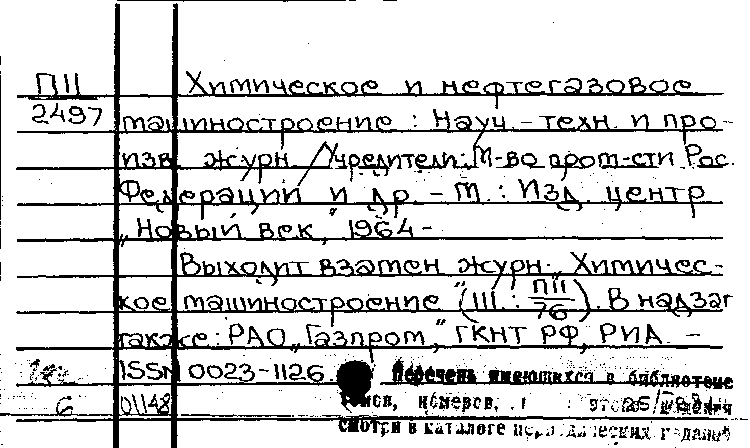 ПII Химическое и нефтегазовое
2497 машиностроение : Науч.-техн. и про-
изв. журн. / Учредители: М-во пром-сти Рос.
Федерации и др. - М. : Изд. центр
„Новый век", 1964 -
Выходит взамен журн. „Химичес-
кое машиностроение" (Ш. : ПII/76). В надзаг
также: РАО „Газпром", ГКНТ РФ, РИА. -
ISSN 0023-1126
Перечень имеющихся в библиотеке
6 01148 томов, номеров,
смотри в каталоге периодических изданий